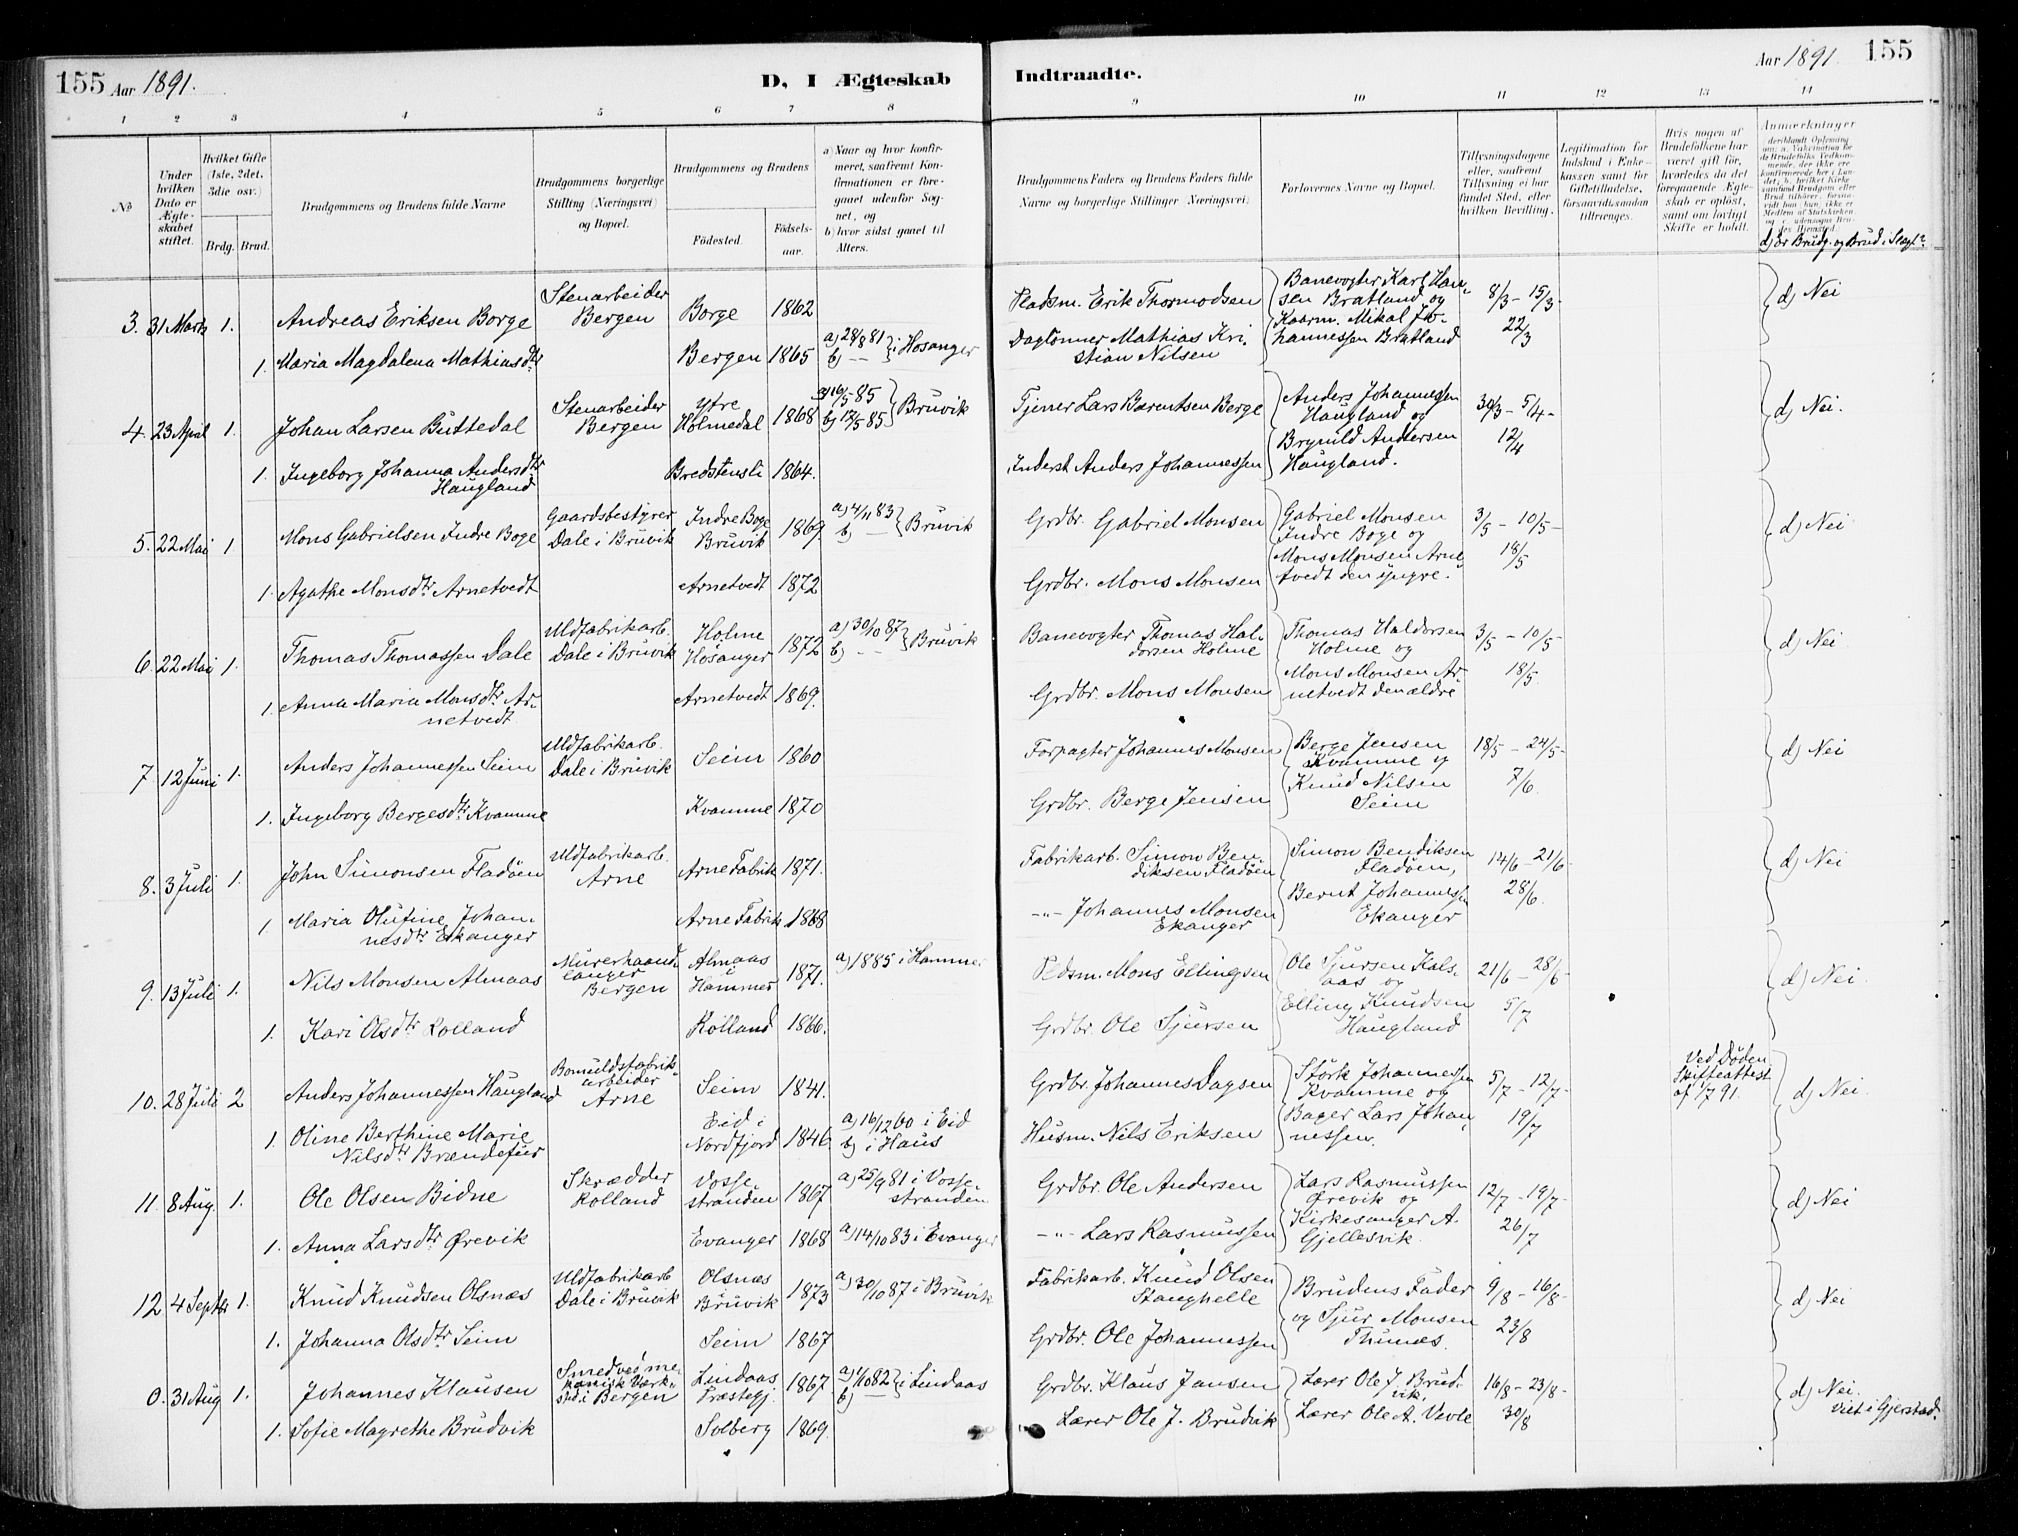 155 Aar 1891.
D, I Ægteskab Indtraadte.
Aar 1891. 155
1 2 3 4 5 6 7 8 9 10 11 12 13 14
No
Under hvilken Dato er Ægteskabet stiftet.
Hvilket Gifte (1ste, 2det, 3die osv.)
Brdg. Brud.
Brudgommens og Brudens fulde Navne
Brudgommens borgerlige Stilling (Næringsvei) og Bopæl.
Brudgommens og Brudens
Fødested. Fødsels-aar.
a) Naar og hvor konfirmeret, saafremt Konfirmationen er foregaaet udenfor Sognet, og
b) hvor sidst gaaet til Alters.
Brudgommens Faders og Brudens Faders fulde Navne og borgerlige Stillinger (Næringsvei)
Forlovernes Navne og Bopæl.
Tillysningsdagene eller, saafremt Tillysning ei har fundet Sted, efter hvilken Bevilling.
Legitimation for Indskud i Enkekassen samt for Giftetilladelse, forsaavidt saadan tiltrænges.
Hvis nogen af Brudefolkene har været gift før, hvorledes da det foregaaende Ægteskab er opløst, samt om lovligt Skifte er holdt.
Anmærkninger
d) Er Brudg. og Brud i Slegt?
3. 31 Marts 1. Andreas Eriksen Borge Stenarbeider Bergen Borge 1862 Pladsm. Erik Thormodsen Banevogter Karl Hansen Bratland og Kaarm. Mikal Johannessen Bratland 8/3 - 15/3 - 22/3 d) Nei
1. Maria Magdalena Mathiasdtr Bergen 1865 a) 28/8 81 b) -- i Hosanger Daglønner Mathias Kristian Nilsen
4. 23 April 1. Johan Larsen Buttedal Stenarbeider Bergen Ytre Holmedal 1868 a) 16/5 85 b) 17/5 85 Bruvik Tjener Lars Bærentsen Berge Anders Johannessen Haugland og Brynild Andersen Haugland. 30/3 - 5/4 - 12/4 d) Nei.
1. Ingeborg Johanna Andersdtr Haugland Bredstensli 1864. Inderst Anders Johannessen
5. 22 Mai 1 Mons Gabrielsen Indre Boge Gaardsbestyrer Dale i Bruvik Indre Boge Bruvik 1869. a) 4/11 83 b) — Bruvik Grdbr. Gabriel Monsen Gabriel Monsen Indre Boge og Mons Monsen Arnetvedt den yngre. 3/5 - 10/5 - 18/5 d) Nei
1. Agathe Monsdtr Arnetvedt Arnetvedt 1872 Grdbr. Mons Monsen
6. 22 Mai 1. Thomas Thomassen Dale Uldfabrikarb. Dale i Bruvik Holme Hosanger 1872 a) 30/10 87 b) — Bruvik Banevogter Thomas Haldorsen Holme Thomas Haldorsen Holme og Mons Monsen Arnetvedt den ældre 3/5 - 10/5 - 18/5. d) Nei
1. Anna Maria Monsdtr Arnetvedt Arnetvedt 1869. Grdbr. Mons Monsen
7 12 Juni 1. Anders Johannessen Seim Uldfabrikarb. Dale i Bruvik Seim 1860 Forpagter Johannes Monsen Berge Jensen Kvamme og Knud Nilsen Seim 18/5 - 24/5 - 7/6. d) Nei
1. Ingeborg Bergesdtr Kvamme Kvamme 1870 Grdbr. Berge Jensen
8. 3 Juli 1. John Simonsen Fladøen Uldfabrikarb. Arne Arne Fabrik 1871. Fabrikarb. Simon Bendiksen Fladøen Simon Bendiksen Fladøen, Bernt Johannessen Ekanger 14/6 - 21/6 - 28/6. d) Nei
1 Maria Olufine Johannesdtr Ekanger Arne Fabrik 1868 -"- Johannes Monsen Ekanger
9. 13 Juli 1. Nils Monsen Almaas Murerhaandlanger Bergen Almaas i Hammer 1871. a) 1885 i Hammer Pldsm. Mons Ellingsen Ole Sjursen Kalsaas og Elling Knudsen Haugland 21/6 - 28/6 - 5/7 d) Nei.
1. Kari Olsdtr Rolland Rolland 1866. Grdbr. Ole Sjursen
10. 28 Juli 2 Anders Johannessen Haugland Bomuldsfabrikarbeider Arne Seim 1841. Grdbr. Johannes Dagsen Størk Johannessen Kvamme og Bager Lars Johannessen. 5/7 - 12/7 - 19/7 Ved Døden Skifteattest af 1/7 91. d) Nei.
1. Oline Berthine Marie Nilsdtr Brændefur Eid i Nordfjord 1846. a) 16/12 60 i Eid b) i Haus Husm. Nils Eriksen
11. 8 Aug. 1. Ole Olsen Bidne Skrædder Rolland Vossestranden 1867 a) 25/9 81 i Vossestranden Grdbr. Ole Andersen Lars Rasmussen Ørevik og Kirkesanger A. Gjellesvik. 12/7 - 19/7 - 26/7 d) Nei
1. Anna Larsdtr Ørevik Evanger 1868 a) 14/10 83 i Evanger -"- Lars Rasmussen
12 4 Septbr 1. Knud Knudsen Olsnæs Uldfabrikarb Dale i Bruvik Olsnæs Bruvik 1873 a) 30/10 87 i Bruvik Fabrikarb. Knud Olsen Stanghelle Brudens Fader og Sjur Monsen Thunæs. 9/8 - 16/8 - 23/8 d) Nei
1. Johanna Olsdtr Seim Seim 1867 Grdbr. Ole Johannessen
0. 31 Aug 1. Johannes Klausen Smed ved mekanisk Værksted i Bergen Lindaas Præstegj. 1867 a) 1/10 82 b) — i Lindaas Grdbr. Klaus Jansen Lærer Ole J. Brudvik. Lærer Ole A. Vevle 16/8 - 23/8 - 30/8 d) Nei. Viet i Gjerstad.
1. Sofie Magrethe Brudvik Solberg 1869. Lærer Ole J. Brudvik